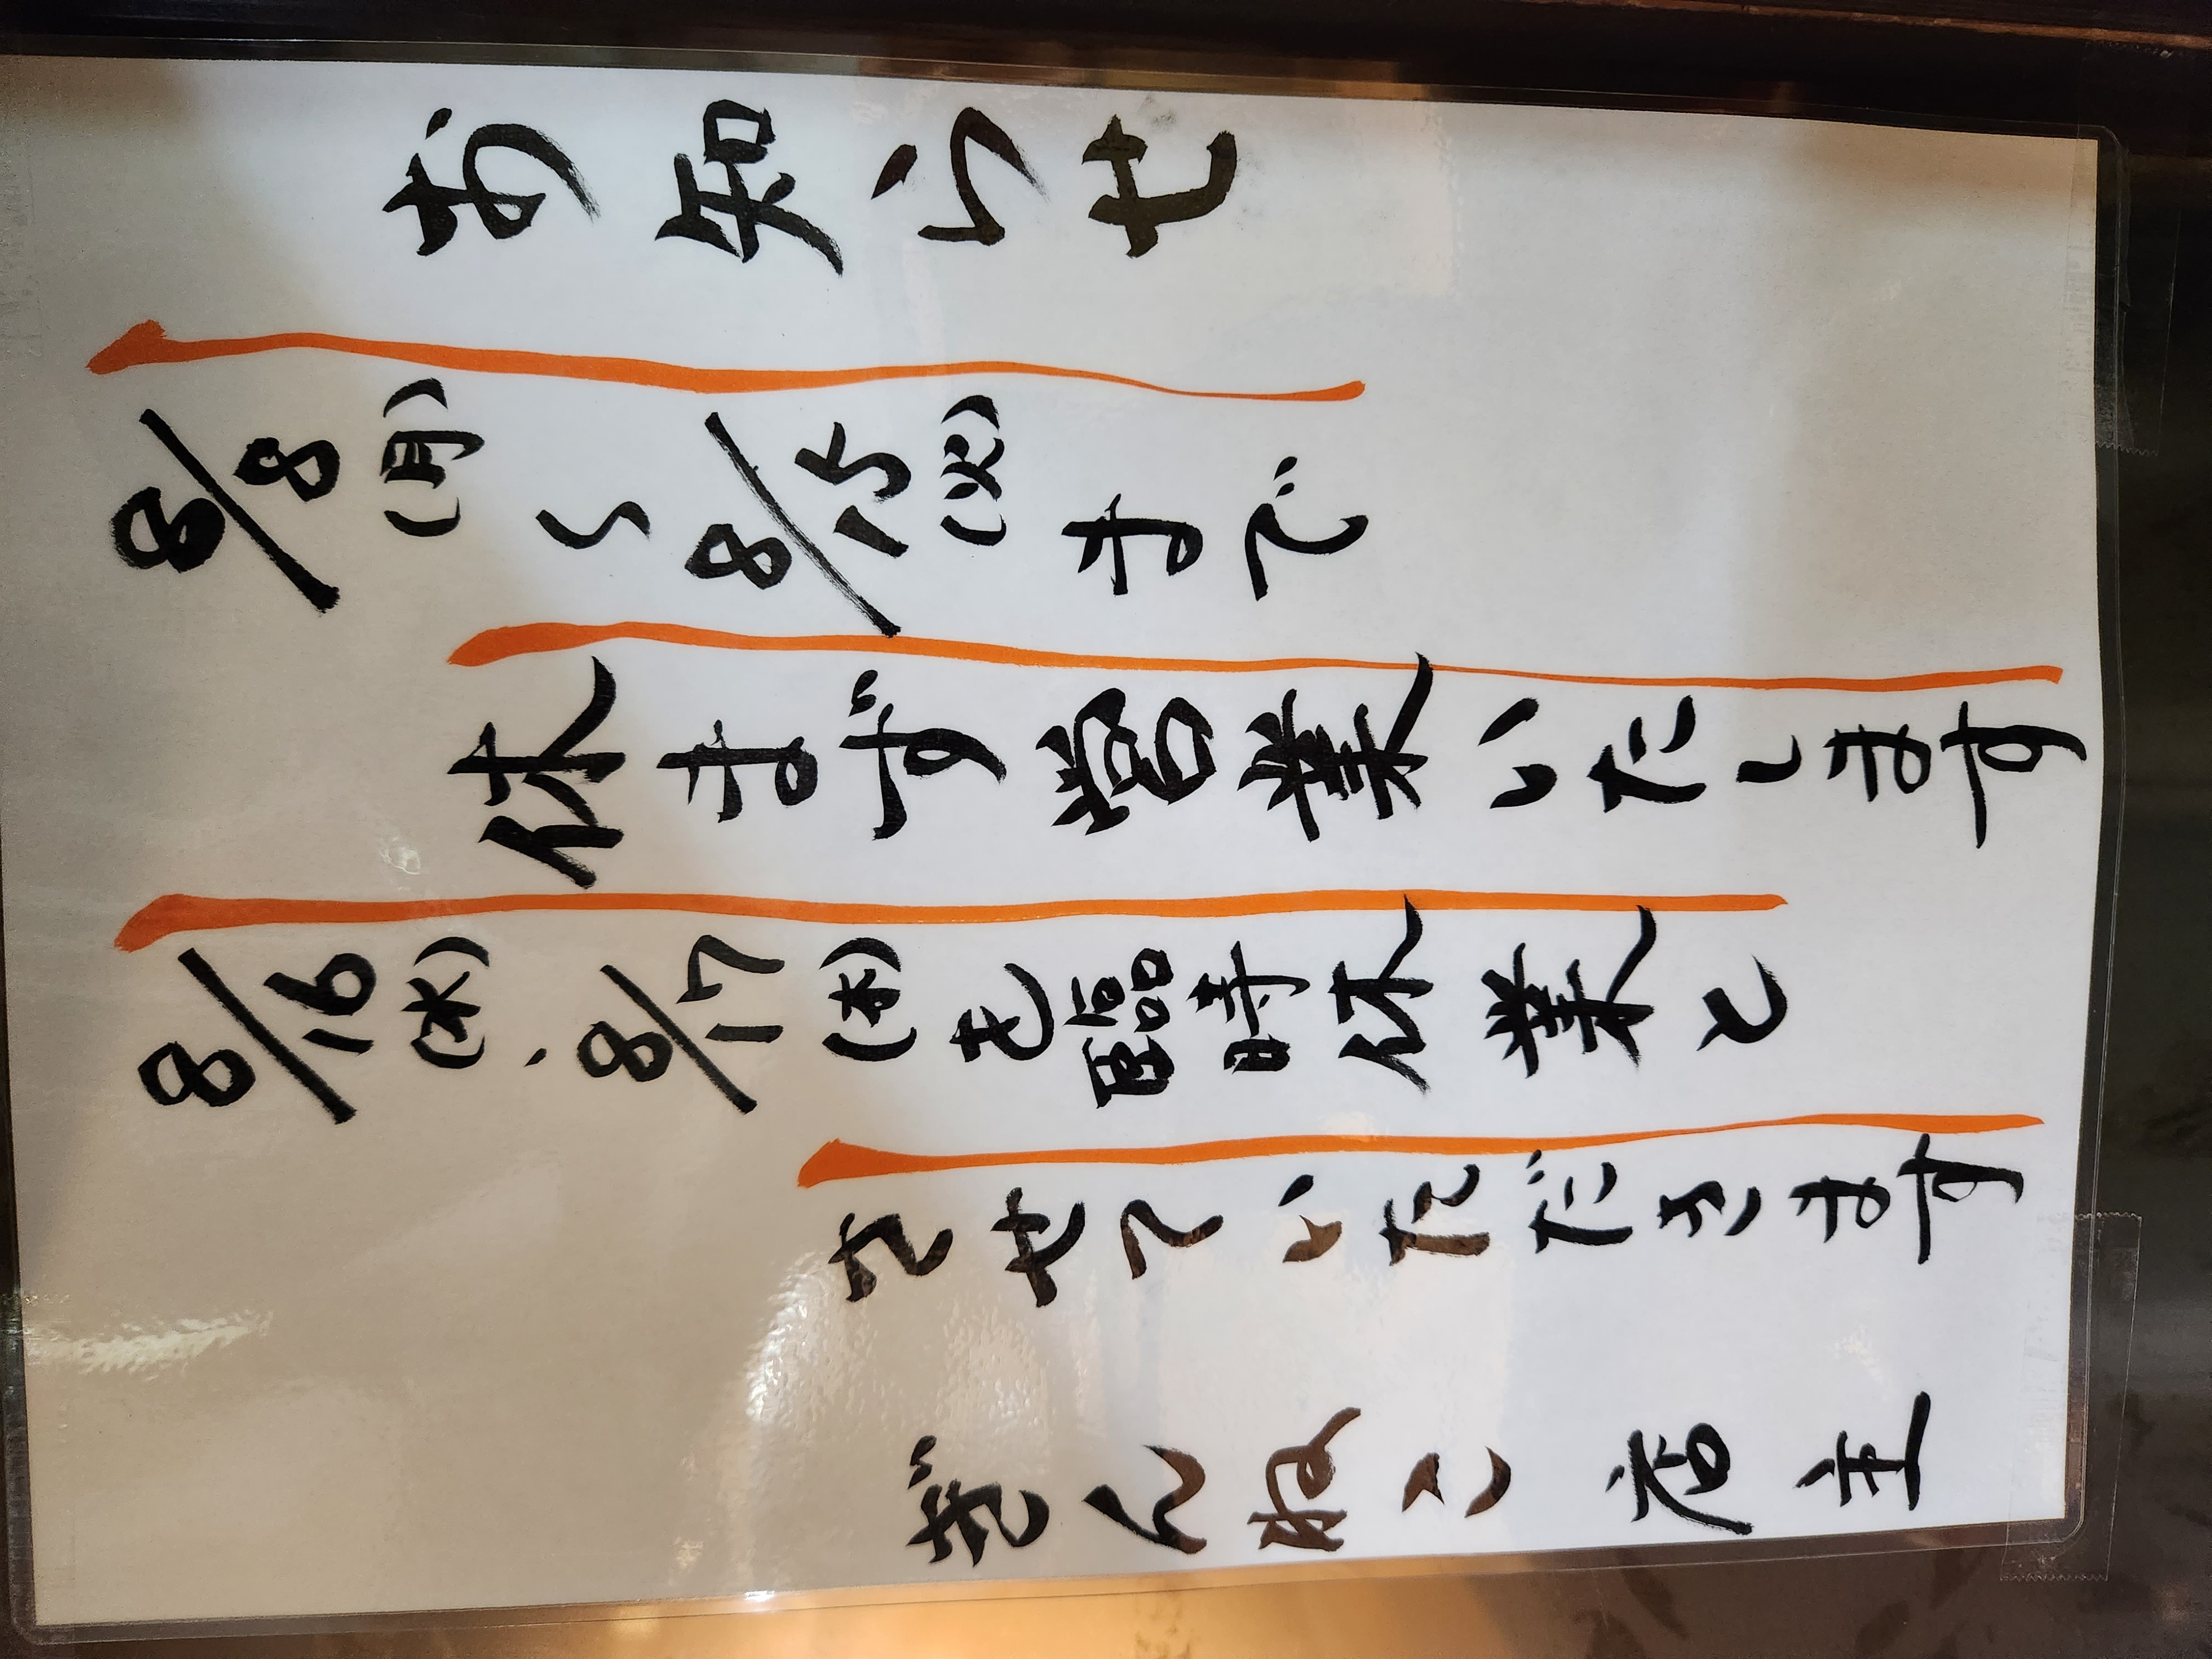 お知らせ
8/8(月)〜8/15(火)まで
休まず営業いたします
8/16(水)、8/17(木)を臨時休業と
させていただきます
ぎんねこ 店主